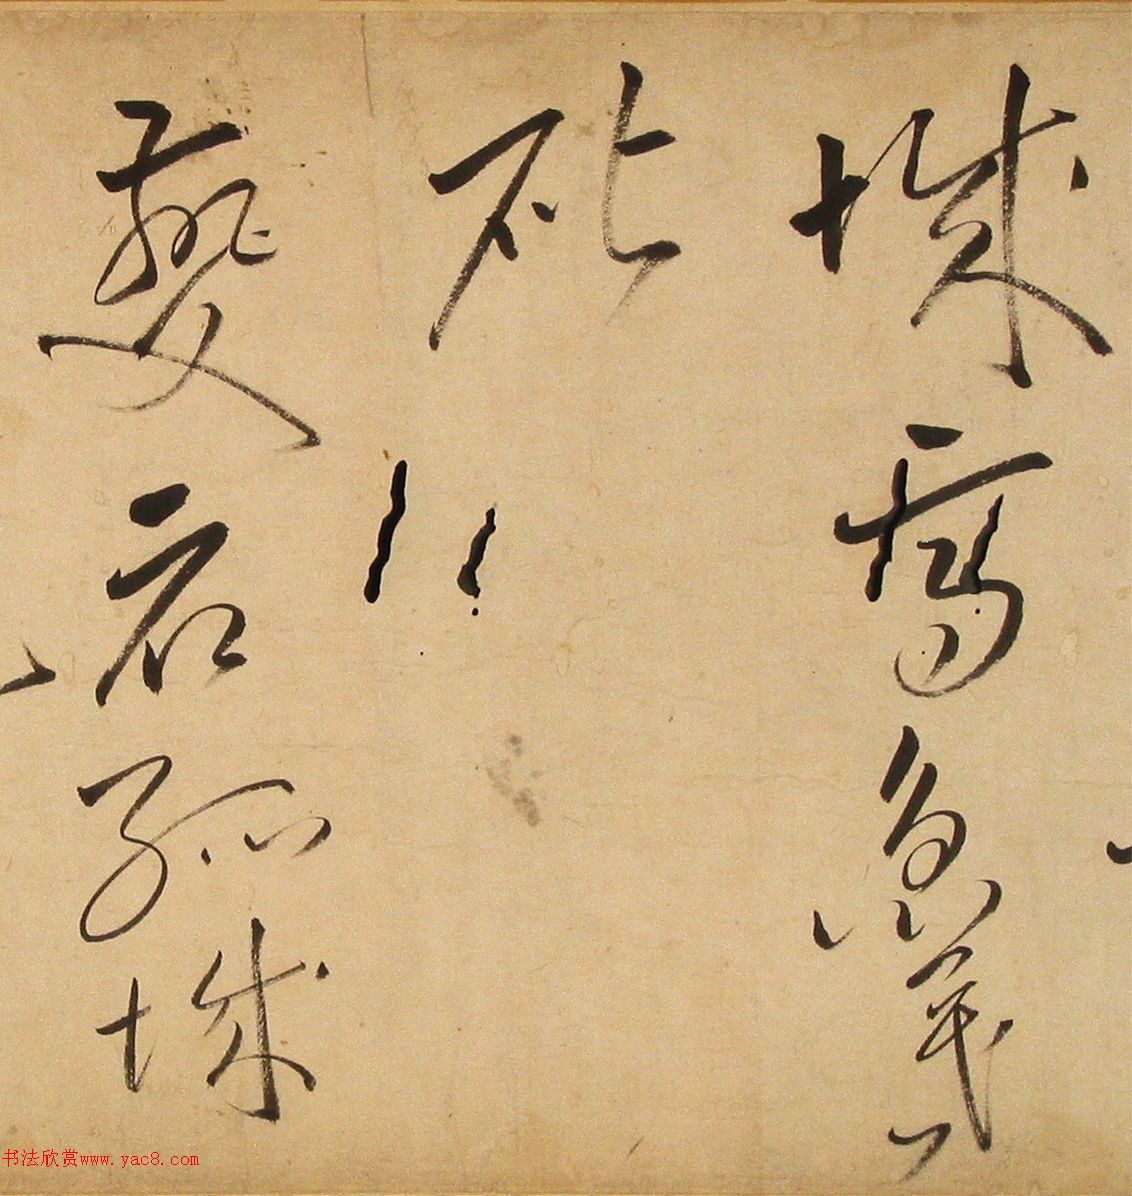 城高急暮
砧
夔府孤城
书法欣赏www.yac8.com